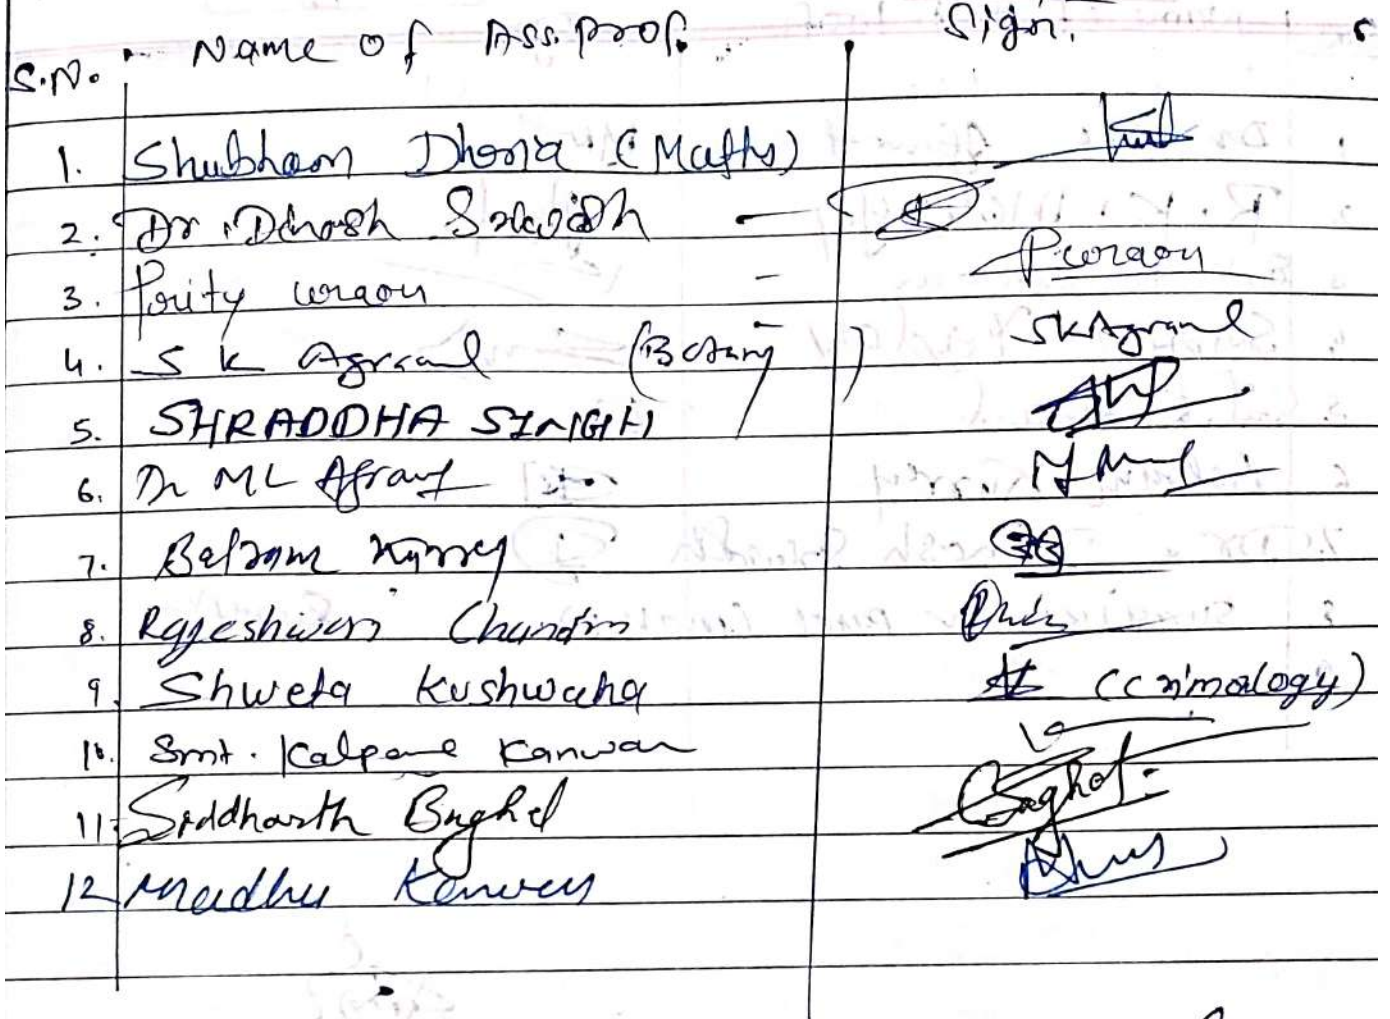 S.N. Name of Ass. prof. Sign.
1. Shubham Dhoria (Maths)
2. Dr. Dinesh Srivash -
3. Purity uraon - Puraon
4. S K Agrawal (Botany) SKAgrawal
5. SHRADDHA SINGH
6. Dr ML Agrawal
7. Balram Kurrey
8. Rajeshwari Chandra
9. Shweta Kushwaha (crimology)
10. Smt. Kalpana Kanwar
11. Siddharth Baghel Baghel
12 Madhu Kanwar